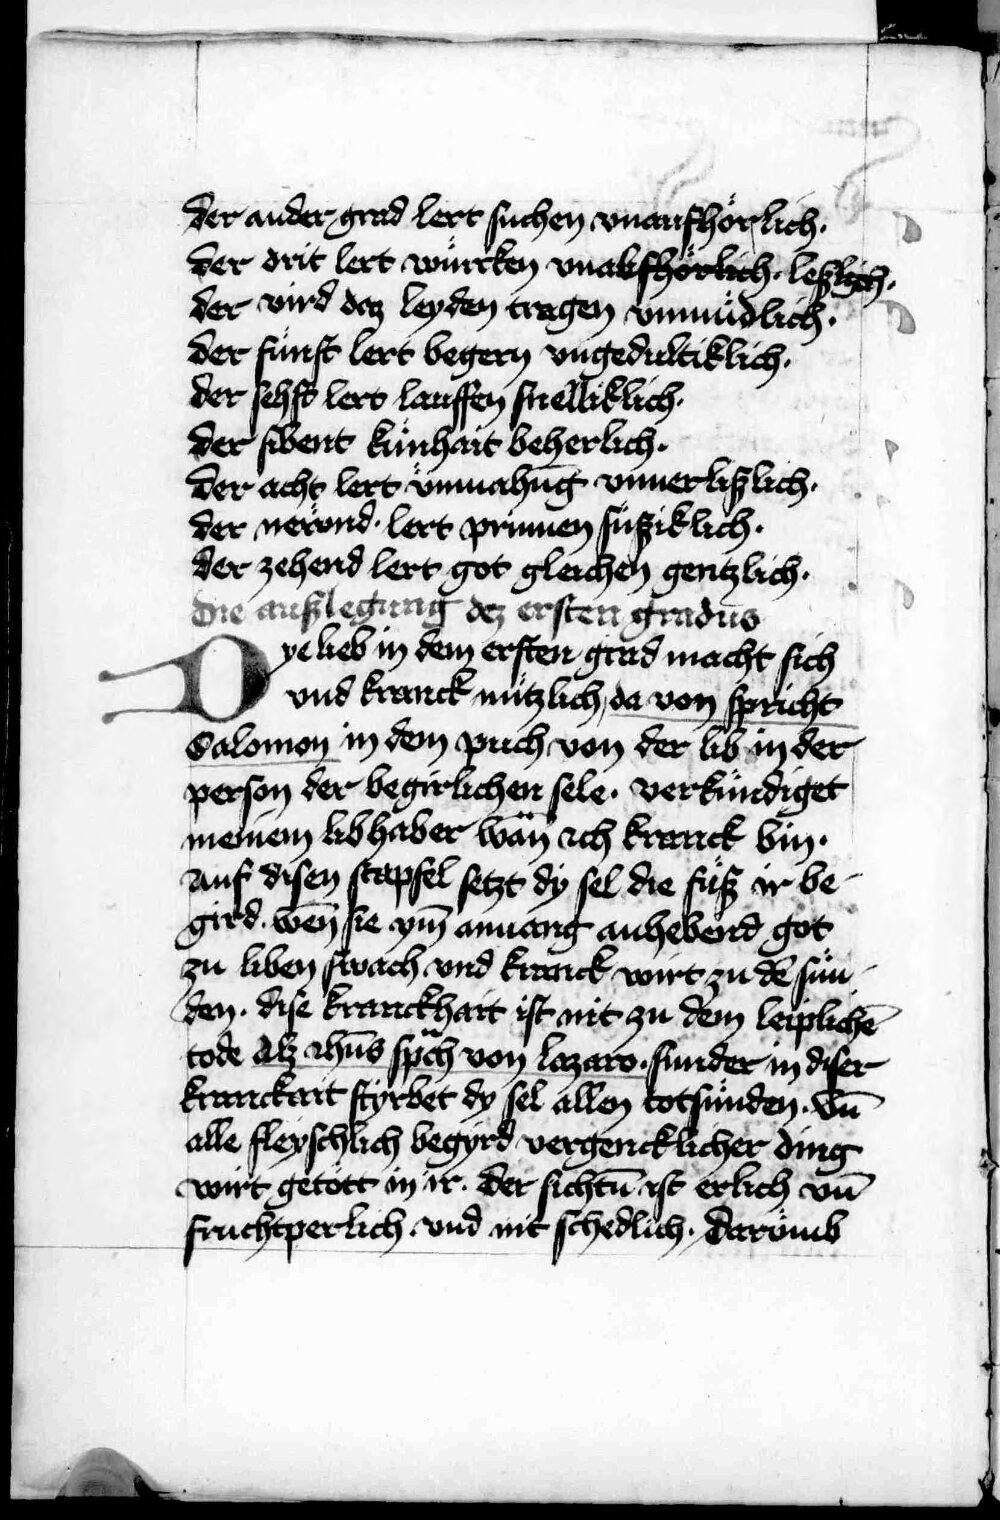 der ander grad lert suchen vnaufhörlich.
der drit lert würcken vnabläßlich.
der vird daz leyden tragen vnmüdlich.
der fünft lert begern vngedultiklich.
der sehst lert lauffen snelliklich.
der sibent künhait beherlich.
der acht lert vmuahūg vnuerlißlich.
der neünd. lert prinnen süßiklich.
der zehend lert got gleichen gentzlich.
Die außlegung dez ersten gradus
Dye lieb in dem ersten grad macht sich
vnd kranck nützlich, da von spricht
Salomon in dem puch von der lib in der
person der begirlichen sele. verkündiget
meinem libhaber wān ich kranck bin.
auf disen stapfel setzt dy sel die füß ir be-
gird. wēn sie ym anuang anhebend got
zu liben swach vnd kranck wirt zu dē sün-
den. dise kranckhait ist nit zu dem leiplichē
tode alz ihūs sp̄ch von lazaro. sunder in diser
kranckait styrbet dy sel allen totsünden. vn̄
alle fleyschlich begyrd vergencklicher ding
wirt getött in ir. der sichtū ist erlich vn̄
fruchtperlich. vnd nit schedlich. Darümb